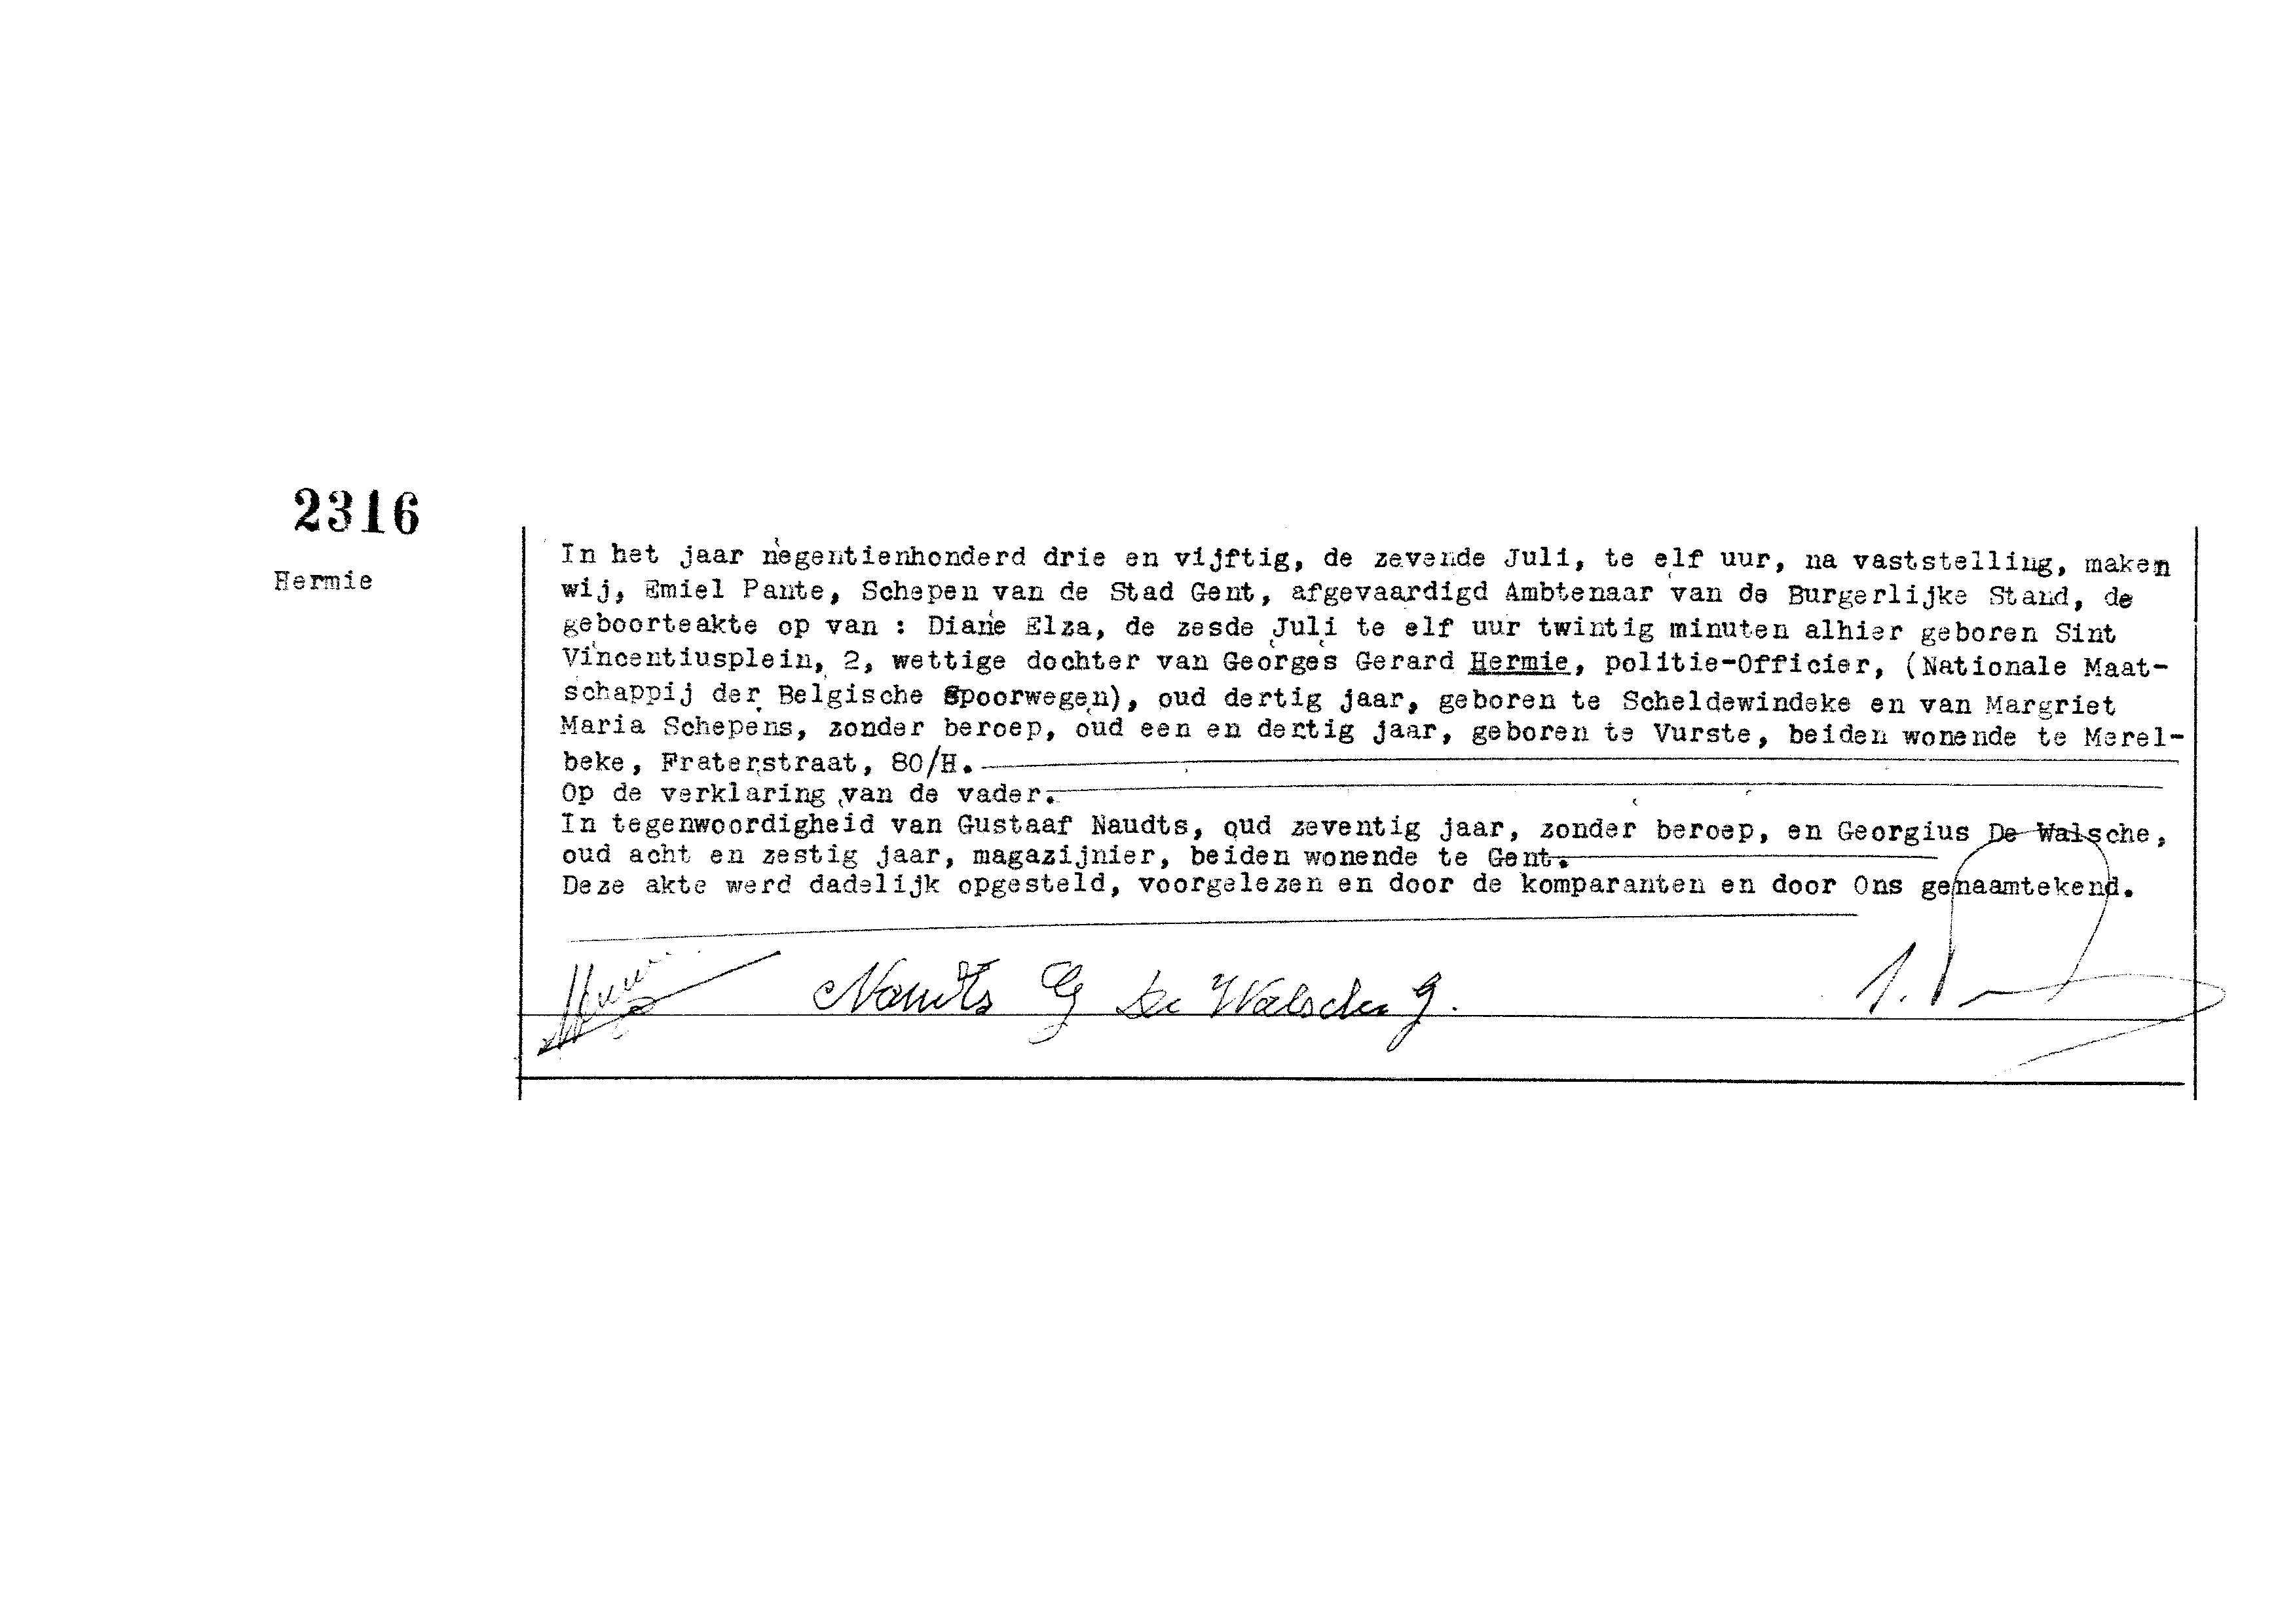 2316
Hermie
In het jaar negentienhonderd drie en vijftig, de zevende Juli, te elf uur, na vaststelling, maken
wij, Emiel Pante, Schepen van de Stad Gent, afgevaardigd Ambtenaar van de Burgerlijke Stand, de
geboorteakte op van : Diane Elza, de zesde Juli te elf uur twintig minuten alhier geboren Sint
Vincentiusplein, 2, wettige dochter van Georges Gerard Hermie, politie-Officier, (Nationale Maat-
schappij der Belgische Spoorwegen), oud dertig jaar, geboren te Scheldewindeke en van Margriet
Maria Schepens, zonder beroep, oud een en dertig jaar, geboren te Vurste, beiden wonende te Merel-
beke, Fraterstraat, 80/H.
Op de verklaring van de vader.
In tegenwoordigheid van Gustaaf Naudts, oud zeventig jaar, zonder beroep, en Georgius De Walsche,
oud acht en zestig jaar, magazijnier, beiden wonende te Gent.
Deze akte werd dadelijk opgesteld, voorgelezen en door de komparanten en door Ons genaamtekend.
Naudts G De Walsche G.